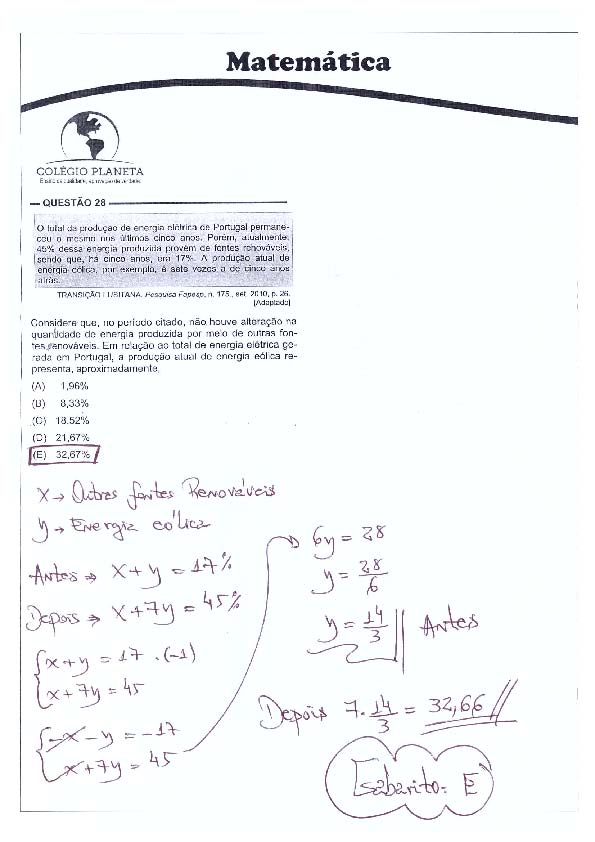 Matemática
COLÉGIO PLANETA
QUESTÃO 28
O total da produção de energia elétrica de Portugal permane-
ceu o mesmo nos últimos cinco anos. Porém, atualmente,
45% dessa energia produzida provém de fontes renováveis,
sendo que, há cinco anos, era 17%. A produção atual de
energia eólica, por exemplo, é sete vezes a de cinco anos
atrás.
TRANSIÇÃO LUSITANA. Pesquisa Fapesp, n. 175, set. 2010, p. 26.
[Adaptado]
Considere que, no período citado, não houve alteração na
quantidade de energia produzida por meio de outras fon-
tes renováveis. Em relação ao total de energia elétrica ge-
rada em Portugal, a produção atual de energia eólica re-
presenta, aproximadamente,
(A) 1,96%
(B) 8,33%
(C) 18,52%
(D) 21,67%
(E) 32,67%
x → Outras fontes Renováveis
y → Energia eólica
Antes ⇒ x + y = 17%
Depois ⇒ x + 7y = 45%
x + y = 17 . (-1)
x + 7y = 45
-x - y = -17
x + 7y = 45
6y = 28
y = 28/6
y = 14/3 || Antes
Depois 7 . 14/3 = 32,66 //
Gabarito: E